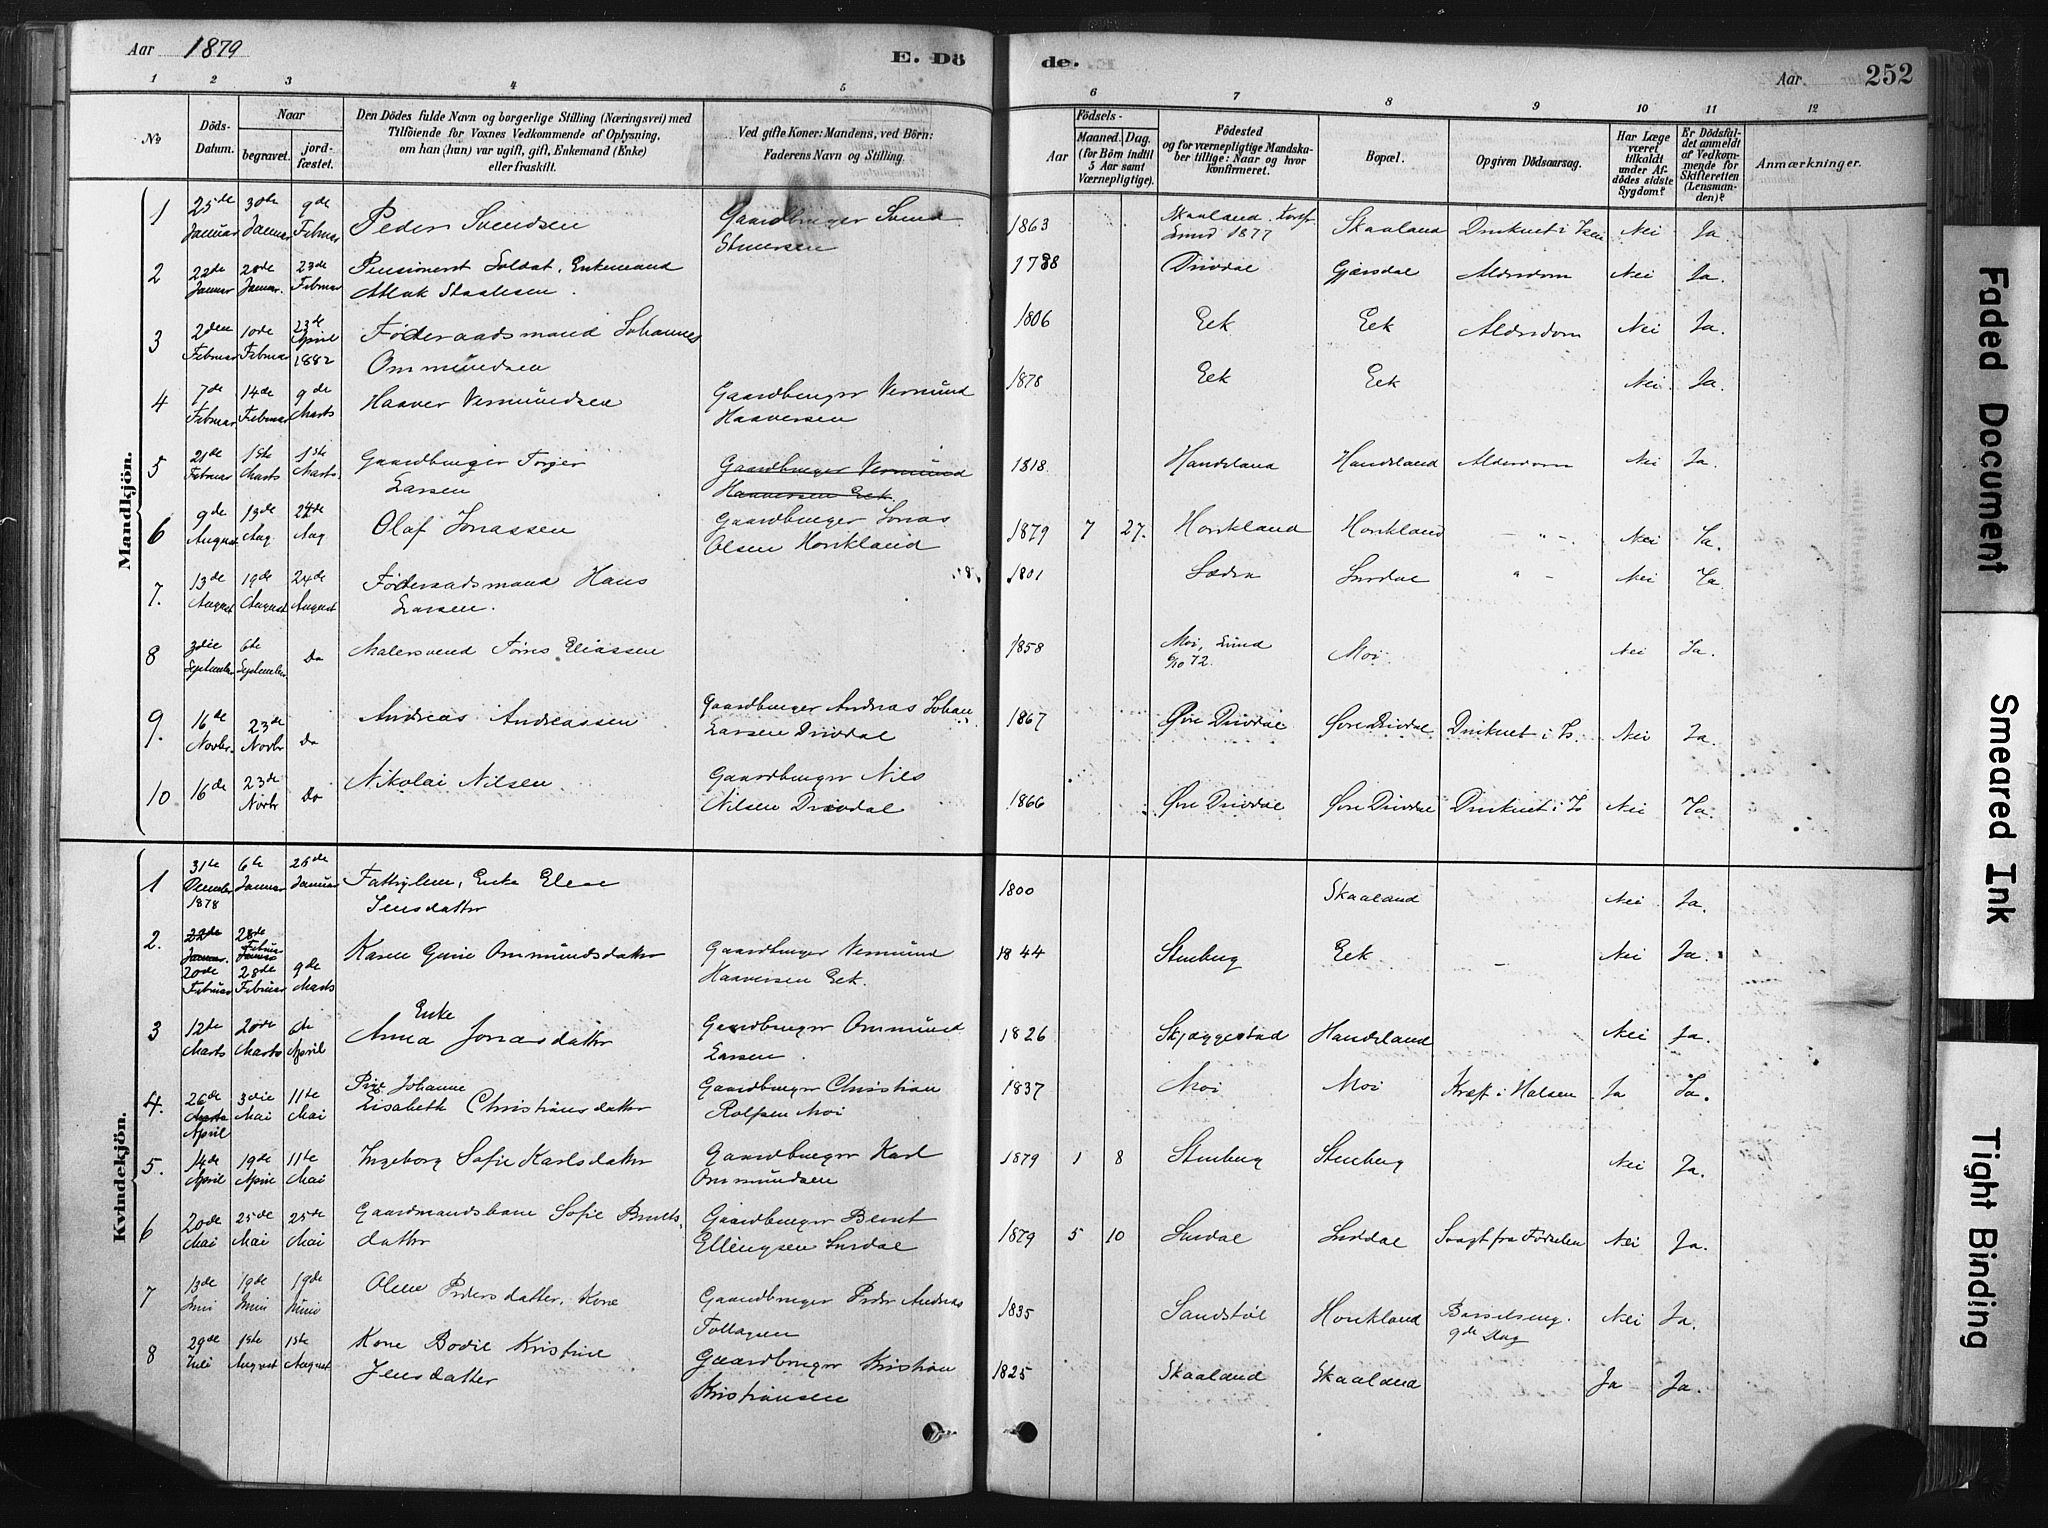 Aar 1879
E. Dö
de.
Aar
252
1 2 3 4 5
6 7 8 9 10 11 12
No
Döds-
Datum.
Naar
begravet.
jord-
fæstet.
Den Dödes fulde Navn og borgerlige Stilling (Næringsvei) med
Tilföiende for Voxnes Vedkommende af Oplysning,
om han (hun) var ugift, gift, Enkemand (Enke)
eller fraskilt.
Ved gifte Koner: Mandens, ved Börn:
Faderens Navn og Stilling.
Födsels-
Aar
Maaned.
Dag.
(for Börn indtil
5 Aar samt
Værnepligtige).
Födested
og for værnepligtige Mandska-
ber tillige: Naar og hvor
konfirmeret.
Bopæl.
Opgiven Dödsaarsag.
Har Læge
været
tilkaldt
under Af-
dödes sidste
Sygdom?
Er Dödsfal-
det anmeldt
af Vedkom-
mende for
Skifteretten
(Lensman-
den)?
Anmærkninger.
Mandkjön.
1 25de Januar 30te Januar 9de Februar Peder Svendsen Gaardbruger Svend
1863 Skaaland Lund 1877 Skaaland Druknet i Nei Ja.
2 22de Januar 28de Januar. 23de Februar Pensioneret Soldat, Enkemand
Staalesen.
1788 Drivdal Gjersdal Alderdom Nei Ja.
3 2den Februar 10de Februar 23de April 1882 Föderaadsmand Johannes
Ommundsen
1806 Eek Eek Alderdom Nei Ja.
4 7de Februar 14de Februar 9de Marts Haaver Vermundsen Gaardbruger Vermund
Haaversen
1878 Eek Eek Nei Ja.
5 21de Februar 1ste Marts 1ste Marts. Gaardbruger Torjer
Larsen
Gaardbruger Vermund
Haaversen Eek.
1818 Handeland Handeland Alderdom Nei Ja.
6 9de August 13de Aug. 24de Aug Olaf Jonassen Gaardbruger Jonas
Olsen Hovkland
1879 7 27. Hovkland Hovkland - " - Nei Ja.
7. 13de August 19de August 24de August Föderaadsmand Hans
Larsen.
1801 Surdal " - Nei Ja.
8 3die September 6te September Do Malersvend Tönes Eliassen
1858 Moi, Lund 6/10 72. Moi Nei Ja.
9. 16de Novbr. 23de Novbr Do Andreas Andreassen Gaardbruger Andreas Johan
Larsen Drivdal
1867 Øvre Drivdal Øvre Drivdal Druknet i Is. Nei Ja.
10 16de 23de Novbr Do Nikolai Nilsen Gaardbruger Nils
Nilsen Drivdal
1866 Øvre Drivdal Øvre Drivdal Druknet i Is Nei Ja.
Kvindekjön.
1 31te December 1878 6te Januar 26de Januar Fattiglem, Enke Elen
Jensdatter
1800 Skaaland Nei Ja.
2. 22de Januar. 20de Februar 28de Februar Januar 28de Februar 9de Marts Karen Gurine Ommundsdatter Gaardbruger Vermund
Haaversen Eek.
1844 Steberg Eek - Nei Ja.
3 12te Marts 20de Marts 6te April Enke
Anna Jonasdatter Gaardbruger Ommund
Larsen.
1826 Skjæggestad Handeland Nei Ja.
4. 26de Marts April 3die Mai 11te Mai Pige Johanne
Elisabeth Christiansdatter Gaardbruger Christian
Rolfsen Moi
1837 Moi Moi Kræft i Halsen Ja Ja.
5. 14de April 19de April 11te Mai Ingeborg Sofie Karlsdatter Gaardbruger Karl
Ommundsen
1879 1 8 Steberg Steberg Nei Ja.
6 20de Mai 25de Mai 25de Mai Gaardmandsbarn Sofie Bernts-
datter
Gaardbruger Bernt
Ellingsen Surdal
1879 5 10 Surdal Surdal Svagt fra Fødselen Nei Ja.
7 13de Juni 19de Juni 19de Juni Olene Pedersdatter, Kone Gaardbruger Peder Andreas
Tollagsen
1835 Sandstøl Hovkland Barselseng. 9de Dag Nei Ja.
8 29de Juli 1ste August 1ste August Kone Bodil Kristine
Jensdatter
Gaardbruger Kristian
Kristiansen
1825 Skaaland Skaaland Ja Ja.
Faded Document
Smeared Ink
Tight Binding